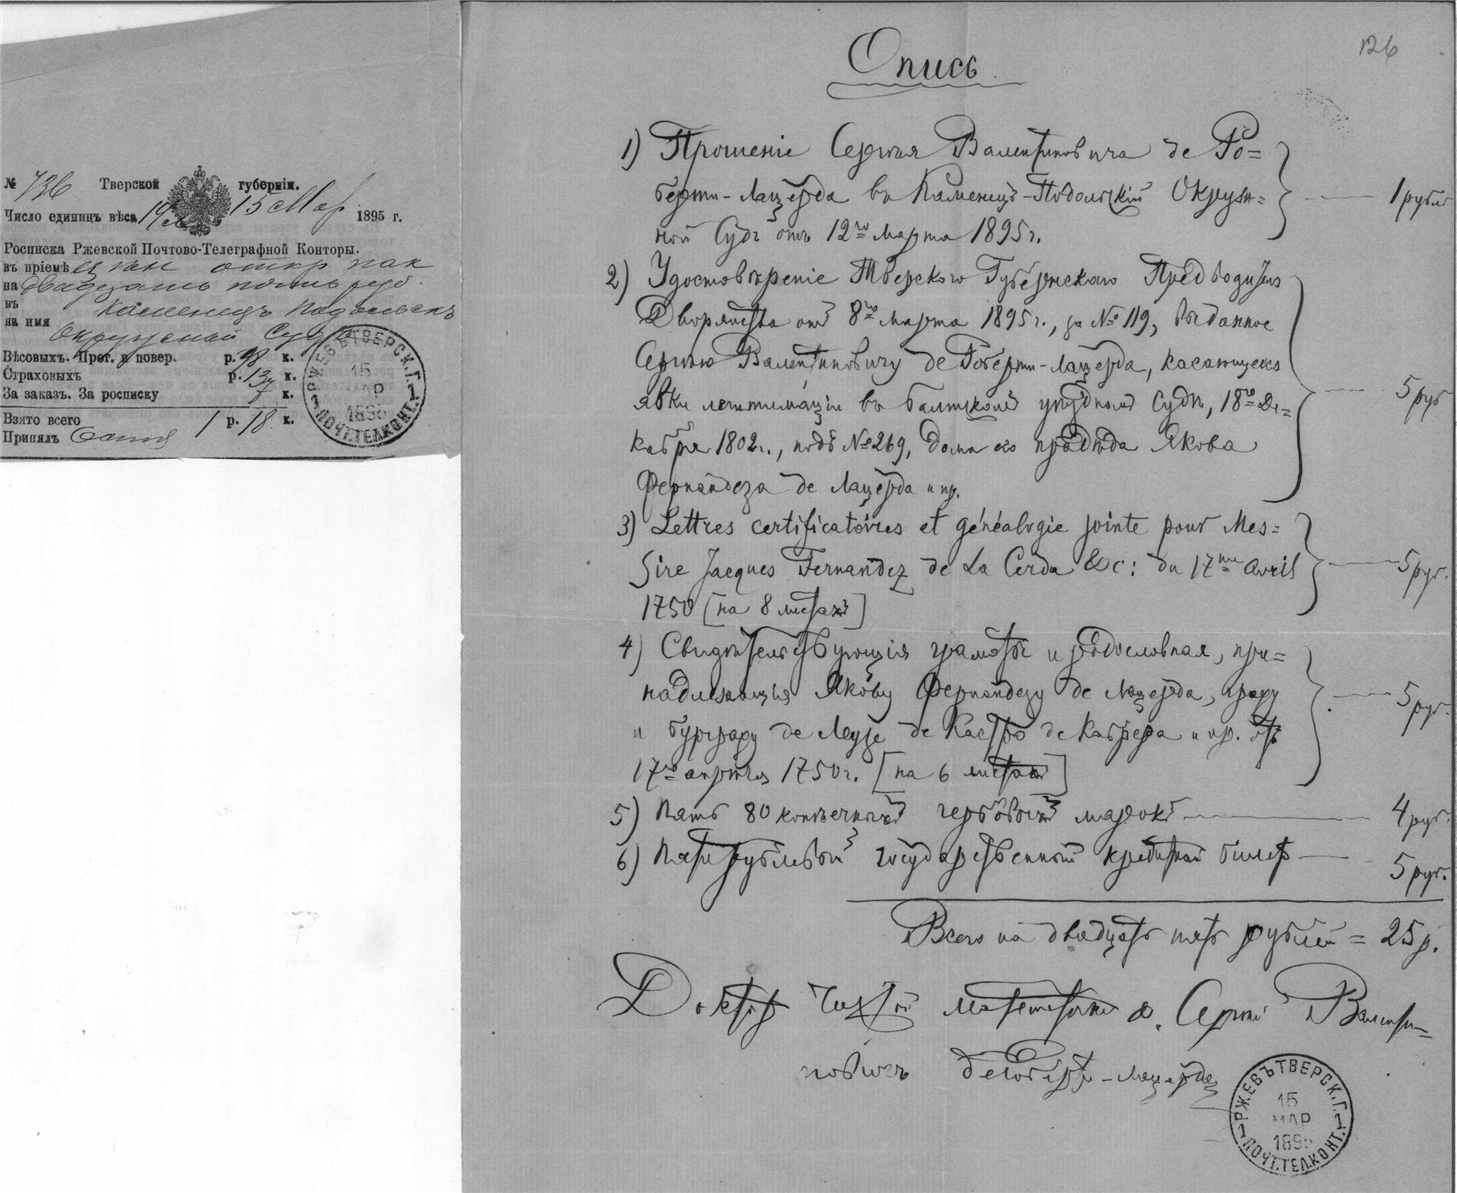 № 736 Тверской губерніи.
Число единицъ вѣса 19 15 Мар 1895 г.
Росписка Ржевской Почтово-Телеграфной Конторы.
въ пріемѣ цѣн откр пак
на двадцать пять руб.
въ Каменецъ Подольскъ
на имя
Окружной Суд
Вѣсовыхъ. Прот. и повер. р. 98 к.
Страховыхъ р. 13 к.
За заказъ. За росписку 7 к.
Взято всего
Принялъ 1 р. 18 к.
РЖЕВЪ ТВЕРСК. Г.
15
МАР
1895
ПОЧТ. ТЕЛ. КОНТ.
126
Опись
1) Прошеніе Сергѣя Валентиновича де Ро=
берти-Лацерда въ Каменецъ-Подольскій Окруж=
ной Судъ отъ 12го марта 1895г. — 1 рубль
2) Удостовѣреніе Тверского Губернскаго Предводителя
Дворянства отъ 8го марта 1895г., за № 119, выданное
Сергѣю Валентиновичу де Роберти-Лацерда, касающееся
явки легитимаціи въ Балтскомъ уѣздномъ Судѣ, 18го Де=
кабря 1802г., подъ № 269, прадѣда Якова
Фернандеза де Лацерда и пр. — 5 руб
3) Lettres certificatoires et généalogie jointe pour Mes=
sire Jacques Fernandez de La Cerda &c: du 17me Avril
1750 [на 8 листахъ] — 5 руб.
4) Свидѣтельствующія грамоты и родословная, при=
надлежащія Якову Фернандезу де Лацерда, графу
и бургграфу де Леузе де Кастро де Кабрера и пр. отъ
17го апрѣля 1750г. [на 6 листахъ] — 5 руб.
5) Пять 80 копѣечныхъ гербовыхъ марокъ — 4 руб.
6) Пяти рублевый государственный кредитный билетъ — 5 руб.
Всего на двадцать пять рублей = 25 р.
Докторъ чистой математики Сергѣй Валенти=
новичъ де Роберти-Лацерда
РЖЕВЪ ТВЕРСК. Г.
15
МАР
1895
ПОЧТ. ТЕЛ. КОНТ.